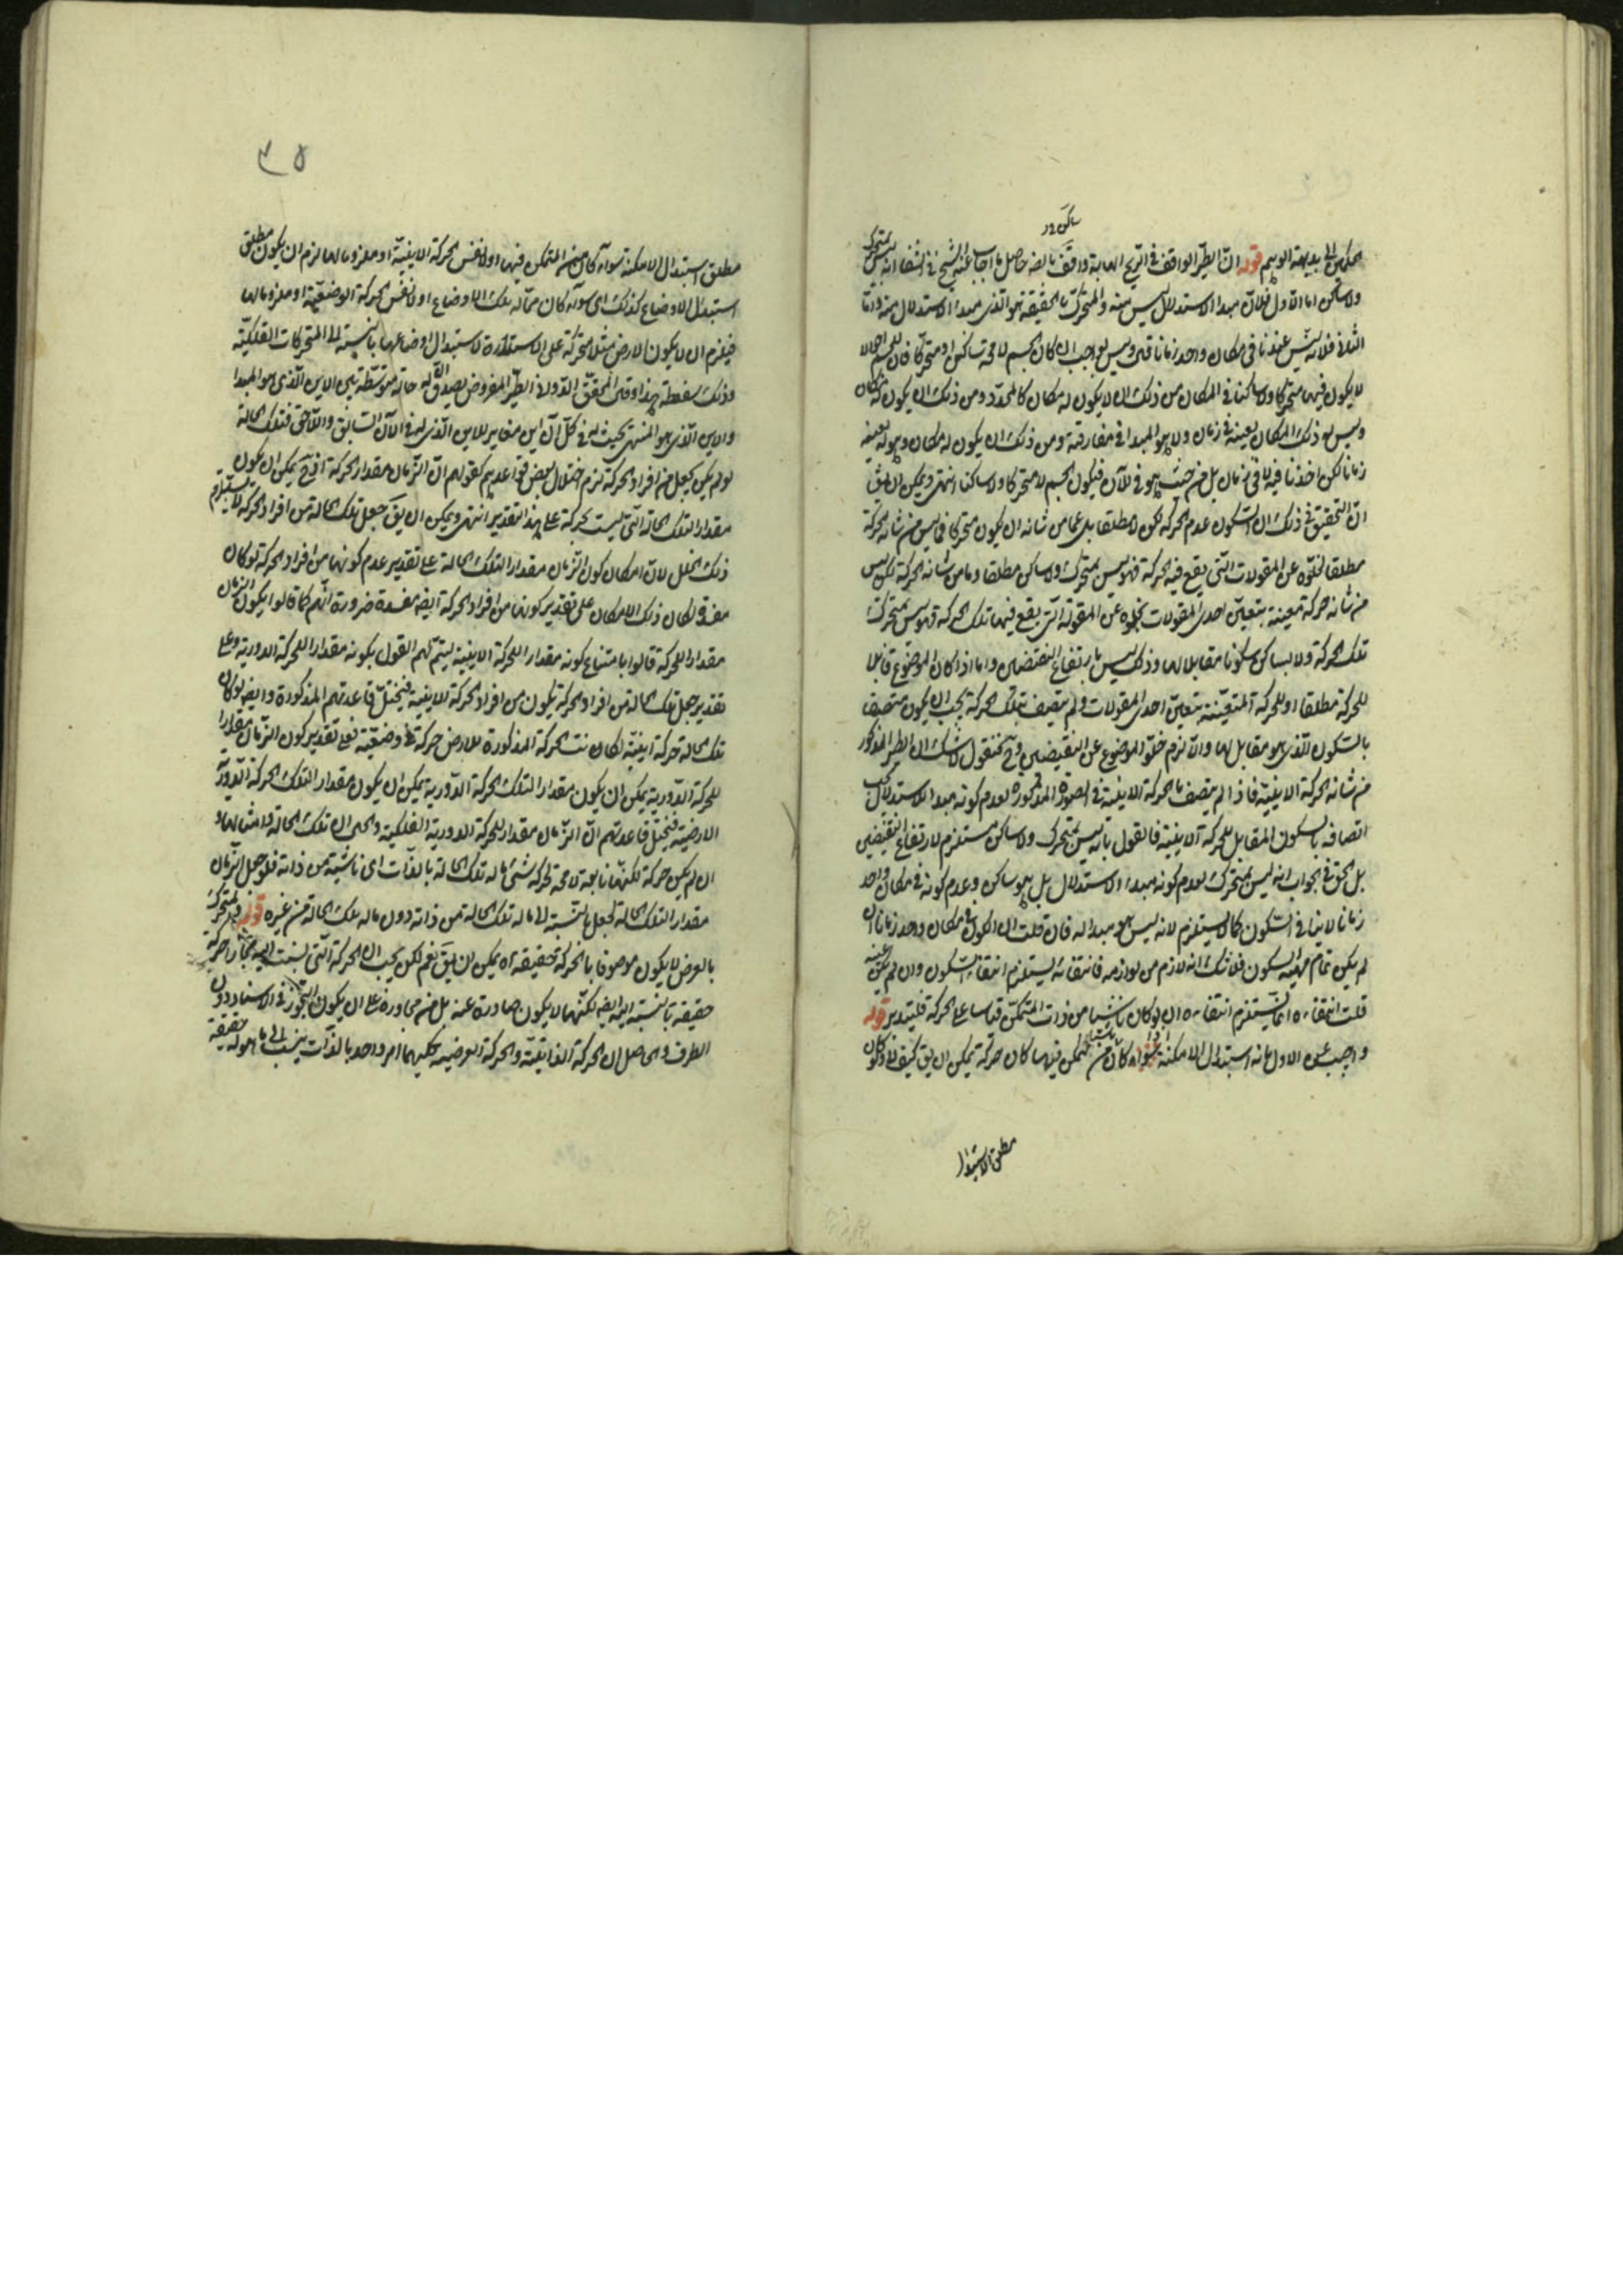 ساكن ور
ان الطير الواقف في الريح الهابة واقف حاصل ما اجاب عنه الشيخ في الشفا انه ليس بمتحرك قوله الوهم بديهة
ولا ساكن اما الاول فلان مبدأ الاستبدال ليس منه والمتحرك بالحقيقة هو الذي مبدأ الاستبدال منه واما
الثاني فلانه ليس عندنا في مكان واحد زمانا وليس بواجب ان كان الجسم لا محة ساكن او متحركا فان للجسم احوالا
لا يكون فيها متحركا ولا ساكنا في المكان من ذلك ان لا يكون له مكان كالمحدد ومن ذلك ان يكون له مكان
وليس هو ذلك المكان بعينه في زمان ولا هو المبدأ في مفارقته ومن ذلك ان يكون له مكان وهو له بعينه
زمانا لكن اخذناه فيه لا في زمان بل من حيث هو في الآن فيكون الجسم لا متحركا ولا ساكنا انتهى ويمكن ان يق
ان التحقيق في ذلك ان السكون عدم الحركة لكن لا مطلقا بل عما من شانه ان يكون متحركا فما ليس من شانه الحركة
مطلقا لخلوه عن المقولات التي يقع فيه الحركة فهو ليس بمتحرك ولا ساكن مطلقا وما من شانه الحركة لكن ليس
من شانه حركة معينة بتعين احدى المقولات لخلوه عن المقولة التي يقع فيها تلك الحركة فهو ليس بمتحرك
تلك الحركة ولا بساكن سكونا مقابلا لها وذلك ليس بارتفاع النقيضين واما اذا كان الموضوع قابلا
للحركة مطلقا او للحركة المتعينة بتعين احدى المقولات ولم يتصف بتلك الحركة يجب ان يكون متصفا
بالسكون الذي هو مقابل لها والا لزم خلو الموضوع عن النقيضين وح فنقول لا شك ان الطير المذكور
من شانه الحركة الاينية فاذا لم يتصف بالحركة الاينية في الصورة المذكورة لعدم كونه مبدأ الاستبدال يجب
اتصافه بالسكون المقابل للحركة الاينية فالقول بانه ليس بمتحرك ولا ساكن مستلزم لارتفاع النقيضين
بل الحق في الجواب انه ليس بمتحرك لعدم كونه مبدأ الاستبدال بل هو ساكن وعدم كونه في مكان واحد
زمانا لا ينافي السكون كما لا يستلزم لانه ليس هو مبدأ له فان قلت ان الكون في مكان واحد زمانا ان
لم يكن تمام مهية السكون فلا شك انه لازم من لوازمه فانتفائه يستلزم انتفاء السكون وان لم يكن عينه
قلت انتفاءه انما يستلزم انتفاءه ان لو كان ناشيا من ذات المتمكن قياسا على الحركة فليتدبر قوله
واجيب عن الاول بانه استبدال الامكنة سواء كان من المتمكن فيها كان حركة يمكن ان يق كيف لا ولو كان
مطلق الاستبدال
٣٥
مطلق استبدال الامكنة سواء كان من المتمكن فيها او لا نفس الحركة الاينية او ملزوما لها لزم ان يكون مطلق
استبدال الاوضاع كذلك اي سواء كان مما له تلك الاوضاع او لا نفس الحركة الوضعية او ملزوما لها
فيلزم ان لا يكون الارض مثلا متحركة على الاستدارة لاستبدال اوضاعها بالنسبة الى المتحركات الفلكية
وذلك سفسطة هذا وقال المحقق الدواني الطير المفروض يصدق له حالة متوسطة بين الاين الذي هو المبدأ
والاين الذي هو المنتهى بحيث له في كل آن اين مغاير للاين الذي له في الآن السابق واللاحق فتلك الحالة
لو لم يكن يجعل من افراد الحركة لزم اختلال بعض قواعدهم كقولهم ان الزمان مقدار الحركة اذ ح يمكن ان يكون
مقدارا لتلك الحالة التي ليست بحركة على هذا التقدير انتهى ويمكن ان يق جعل تلك الحالة من افراد الحركة لا يستلزم
ذلك الخلل لان امكان كون الزمان مقدارا لتلك الحالة على تقدير عدم كونها من افراد الحركة لو كان
مفسدة لكان ذلك الامكان على تقدير كونها من افراد الحركة ايضه مفسدة ضرورة انهم كما قالوا يكون الزمان
مقدارا للحركة قالوا بامتناع كونه مقدارا للحركة الاينية ليتم لهم القول بكونه مقدارا للحركة الدورية وعلى
تقدير جعل تلك الحالة من افراد الحركة يكون من افراد الحركة الاينية فيختل قاعدتهم المذكورة وايضه لو كان
تلك الحالة حركة اينية لكان الحركة المذكورة للارض حركة وضعية فعلى تقدير كون الزمان مقدارا
للحركة الدورية يمكن ان يكون مقدارا لتلك الحركة الدورية يمكن ان يكون مقدارا لتلك الحركة الدورية
الارضية فيختل قاعدتهم ان الزمان مقدار للحركة الدورية الفلكية والحق ان تلك الحالة وامثالها و
ان لم يكن حركة لكنها تابعة لا محة لحركة شئ ما له تلك الحالة بالذات اي ناشئة من ذاته فلو جعل الزمان
مقدارا لتلك الحالة لجعل بالنسبة الى ما له تلك الحالة من ذاته دون ما له تلك الحالة من غيره قوله والمتحرك
بالعرض لا يكون موصوفا بالحركة حقيقة اه يمكن ان يق نعم لكن يجب ان الحركة التي نسبت اليه مجازا حركة
حقيقة بالنسبة اليه ايضه لكنها لا يكون صادرة عنه بل من مجاوره على ان يكون التجوز في الاسناد دون
الطرف والحاصل ان الحركة الذاتية والحركة العرضية كليهما امر واحد بالذات ينسب الى ما هو له حقيقة